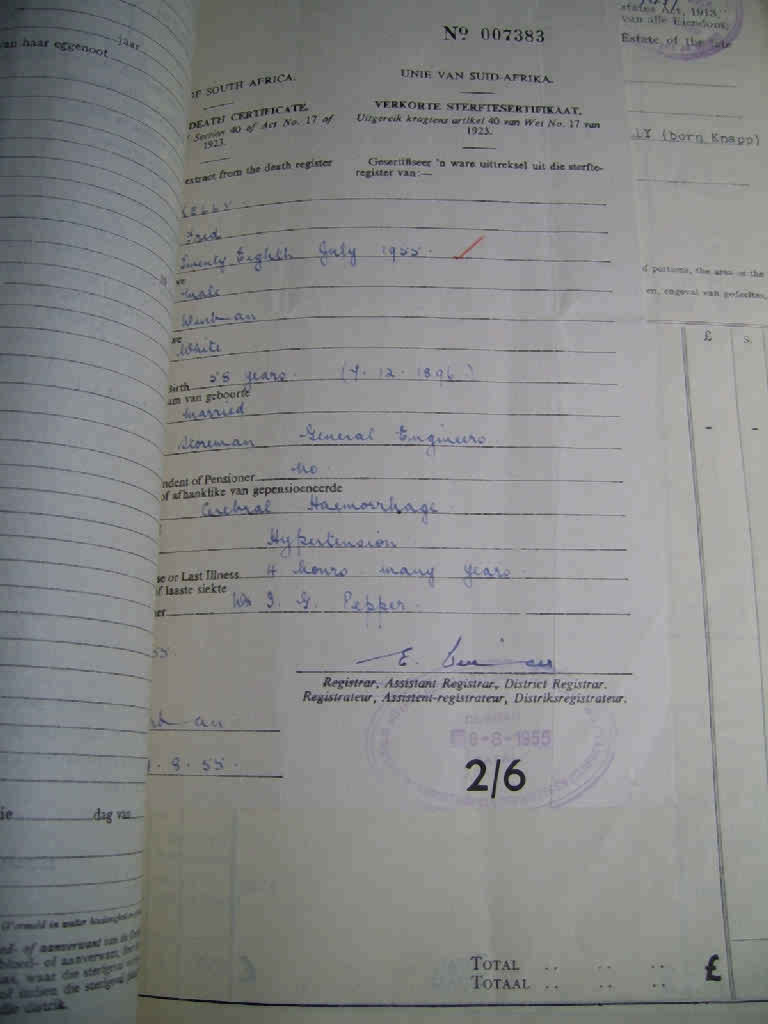 jaar
van haar eggenoot
Nº 007383
states Act, 1913,"
van alle Eiendom,
Estate of the late
OF SOUTH AFRICA.
UNIE VAN SUID-AFRIKA.
DEATH CERTIFICATE.
VERKORTE STERFTESERTIFIKAAT.
Section 40 of Act No. 17 of
1923.
Uitgereik kragtens artikel 40 van Wet No. 17 van
1923.
LY (born Knapp)
extract from the death register
Gesertifiseer 'n ware uittreksel uit die sterfte-
register van:—
Kelly.
Fred
Twenty Eighth July 1955.
Male
Durban
White
Birth 58 years. (7.12.1896.)
um van geboorte
Married
Storeman General Engineers.
ndent of Pensioner No.
of afhanklike van gepensioeneerde
Cerebral Haemorrhage
Hypertension
se or Last Illness 4 hours. many years.
of laaste siekte
I. G. Pepper.
E.
Registrar, Assistant Registrar, District Registrar.
Registrateur, Assistent-registrateur, Distriksregistrateur.
8-8-1955
2/6
.8.55.
d portions, the area of the
£ s.
- -
ie dag van
TOTAL .. .. .. £
TOTAAL .. .. ..